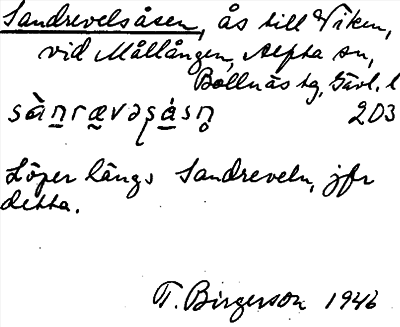 Sandrevelsåsen, ås till Viken,
vid Mållången, Alfta sn,
Bollnäs tg, Gävl. l
sànrævəʂásn̥ 203
Löper längs Sandreveln, jfr
detta.
T. Birgerson 1946